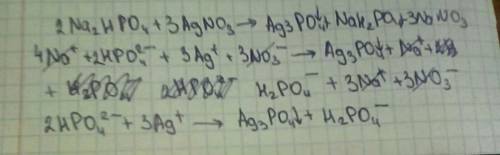 2Na₂HPO₄ + 3AgNO₃ → Ag₃PO₄↓ + NaH₂PO₄ + 3NaNO₃
4Na⁺ + 2HPO₄²⁻ + 3Ag⁺ + 3NO₃⁻ → Ag₃PO₄↓ + Na⁺ +
+ H₂PO₄⁻ + 3Na⁺ + 3NO₃⁻
2HPO₄²⁻ + 3Ag⁺ → Ag₃PO₄↓ + H₂PO₄⁻